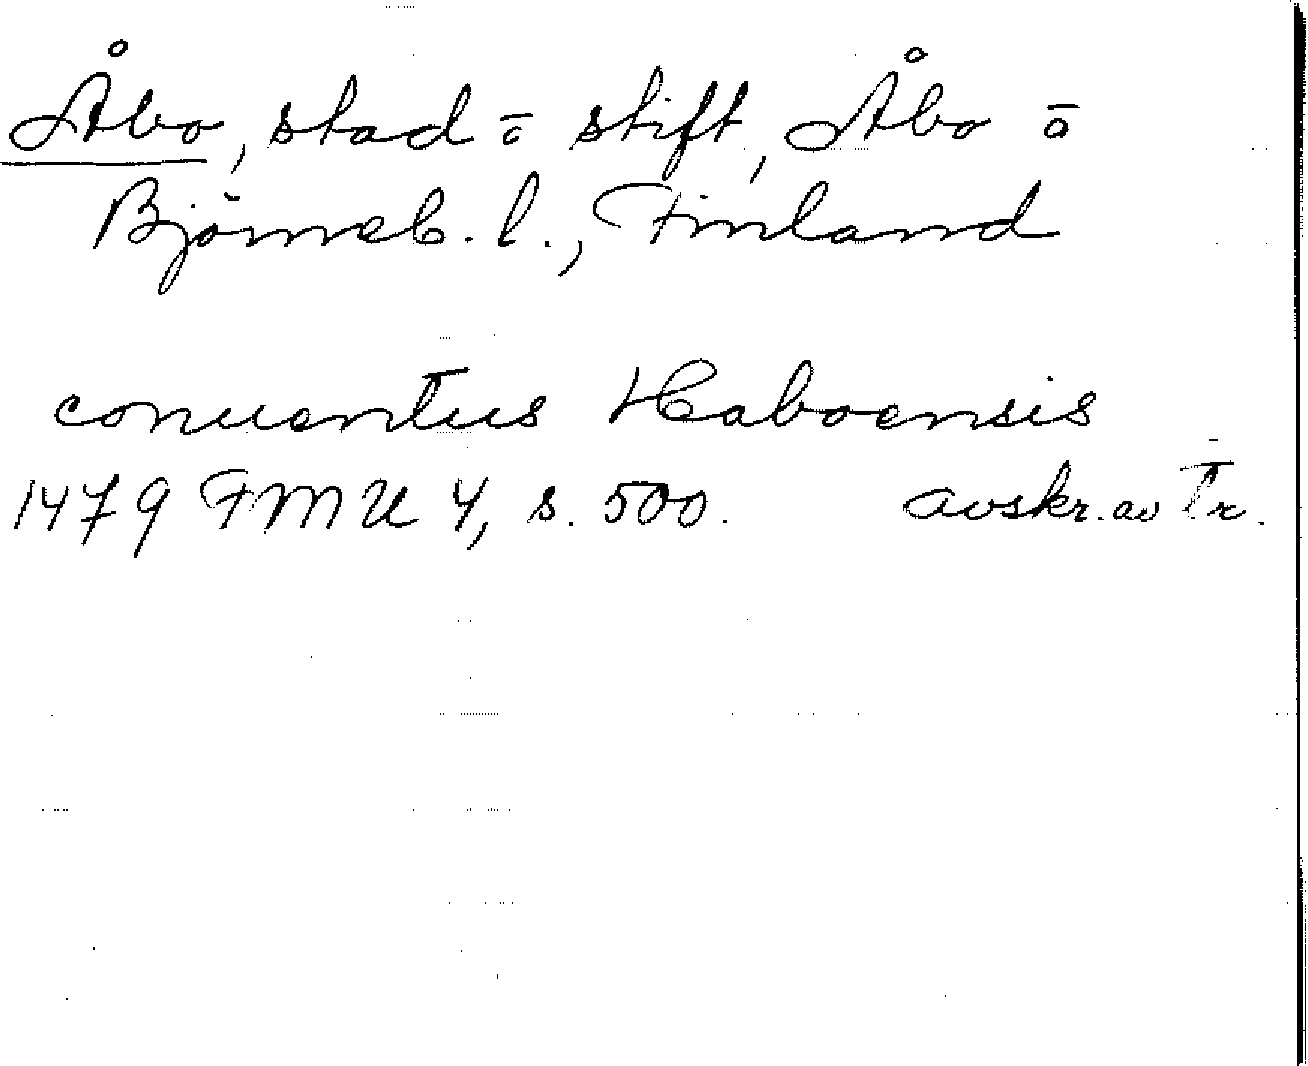 Åbo, stad ō stift, Åbo ō
Björneb. l., Finland
conuentus Haboensis
1479 FMU 4, s. 500. avskr. av Tr.